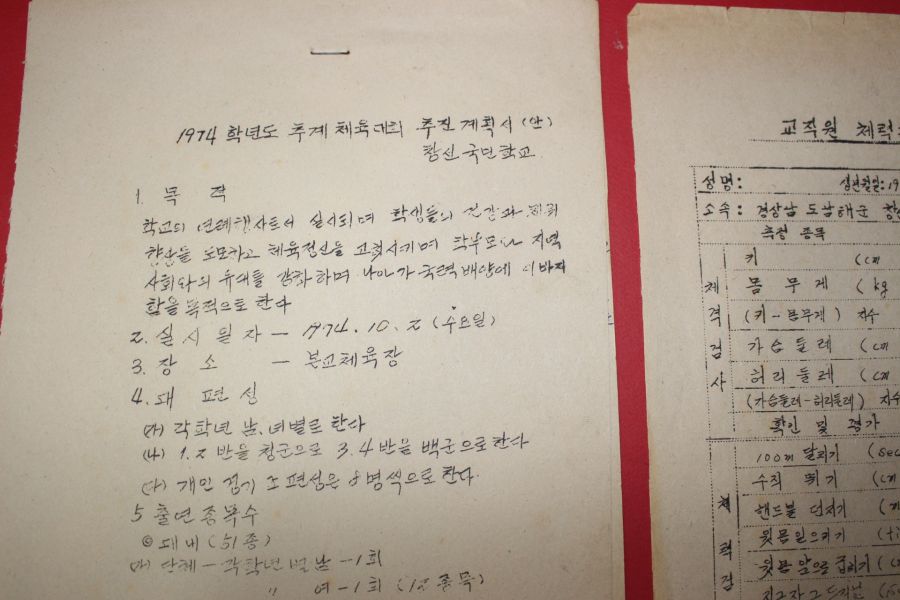 1974 학년도 추계 체육대회 추진 계획서 (안)
창선 국민학교
1. 목 적
학교의 연례행사로서 실시되며 학생들의 건강과 체위
향상을 도모하고 체육정신을 고취시키며 학부모나 지역
사회와의 유대를 강화하며 나아가 국력배양에 이바지
함을 목적으로 한다
2. 실시일자 - 1974. 10. 2 (수요일)
3. 장 소 - 본교체육장
4. 대 편성
(가) 각학년 남, 녀별로 한다
(나) 1.2 반을 청군으로 3.4 반을 백군으로한다
(다) 개인 경기 조편성은 8명씩으로 한다.
5 출연종목수
◎ 대내 (51종)
(가) 단체 - 각학년 별 남 - 1회
〃 여 - 1회 (12종목)
교직원 체력
성명: 생년월일: 19
소속: 경상남도남해군 창선
측정 종목
체격검사
키 (cm
몸무게 (kg
(키-몸무게) 지수
가슴둘레 (cm
허리둘레 (cm
(가슴둘레-허리둘레) 지수
확인 및 평가
체력검
100m 달리기 (sec
수직 뛰기 (cm
핸드볼 던지기 (m
윗몸일으키기
윗몸 앞으로 굽히기 (c